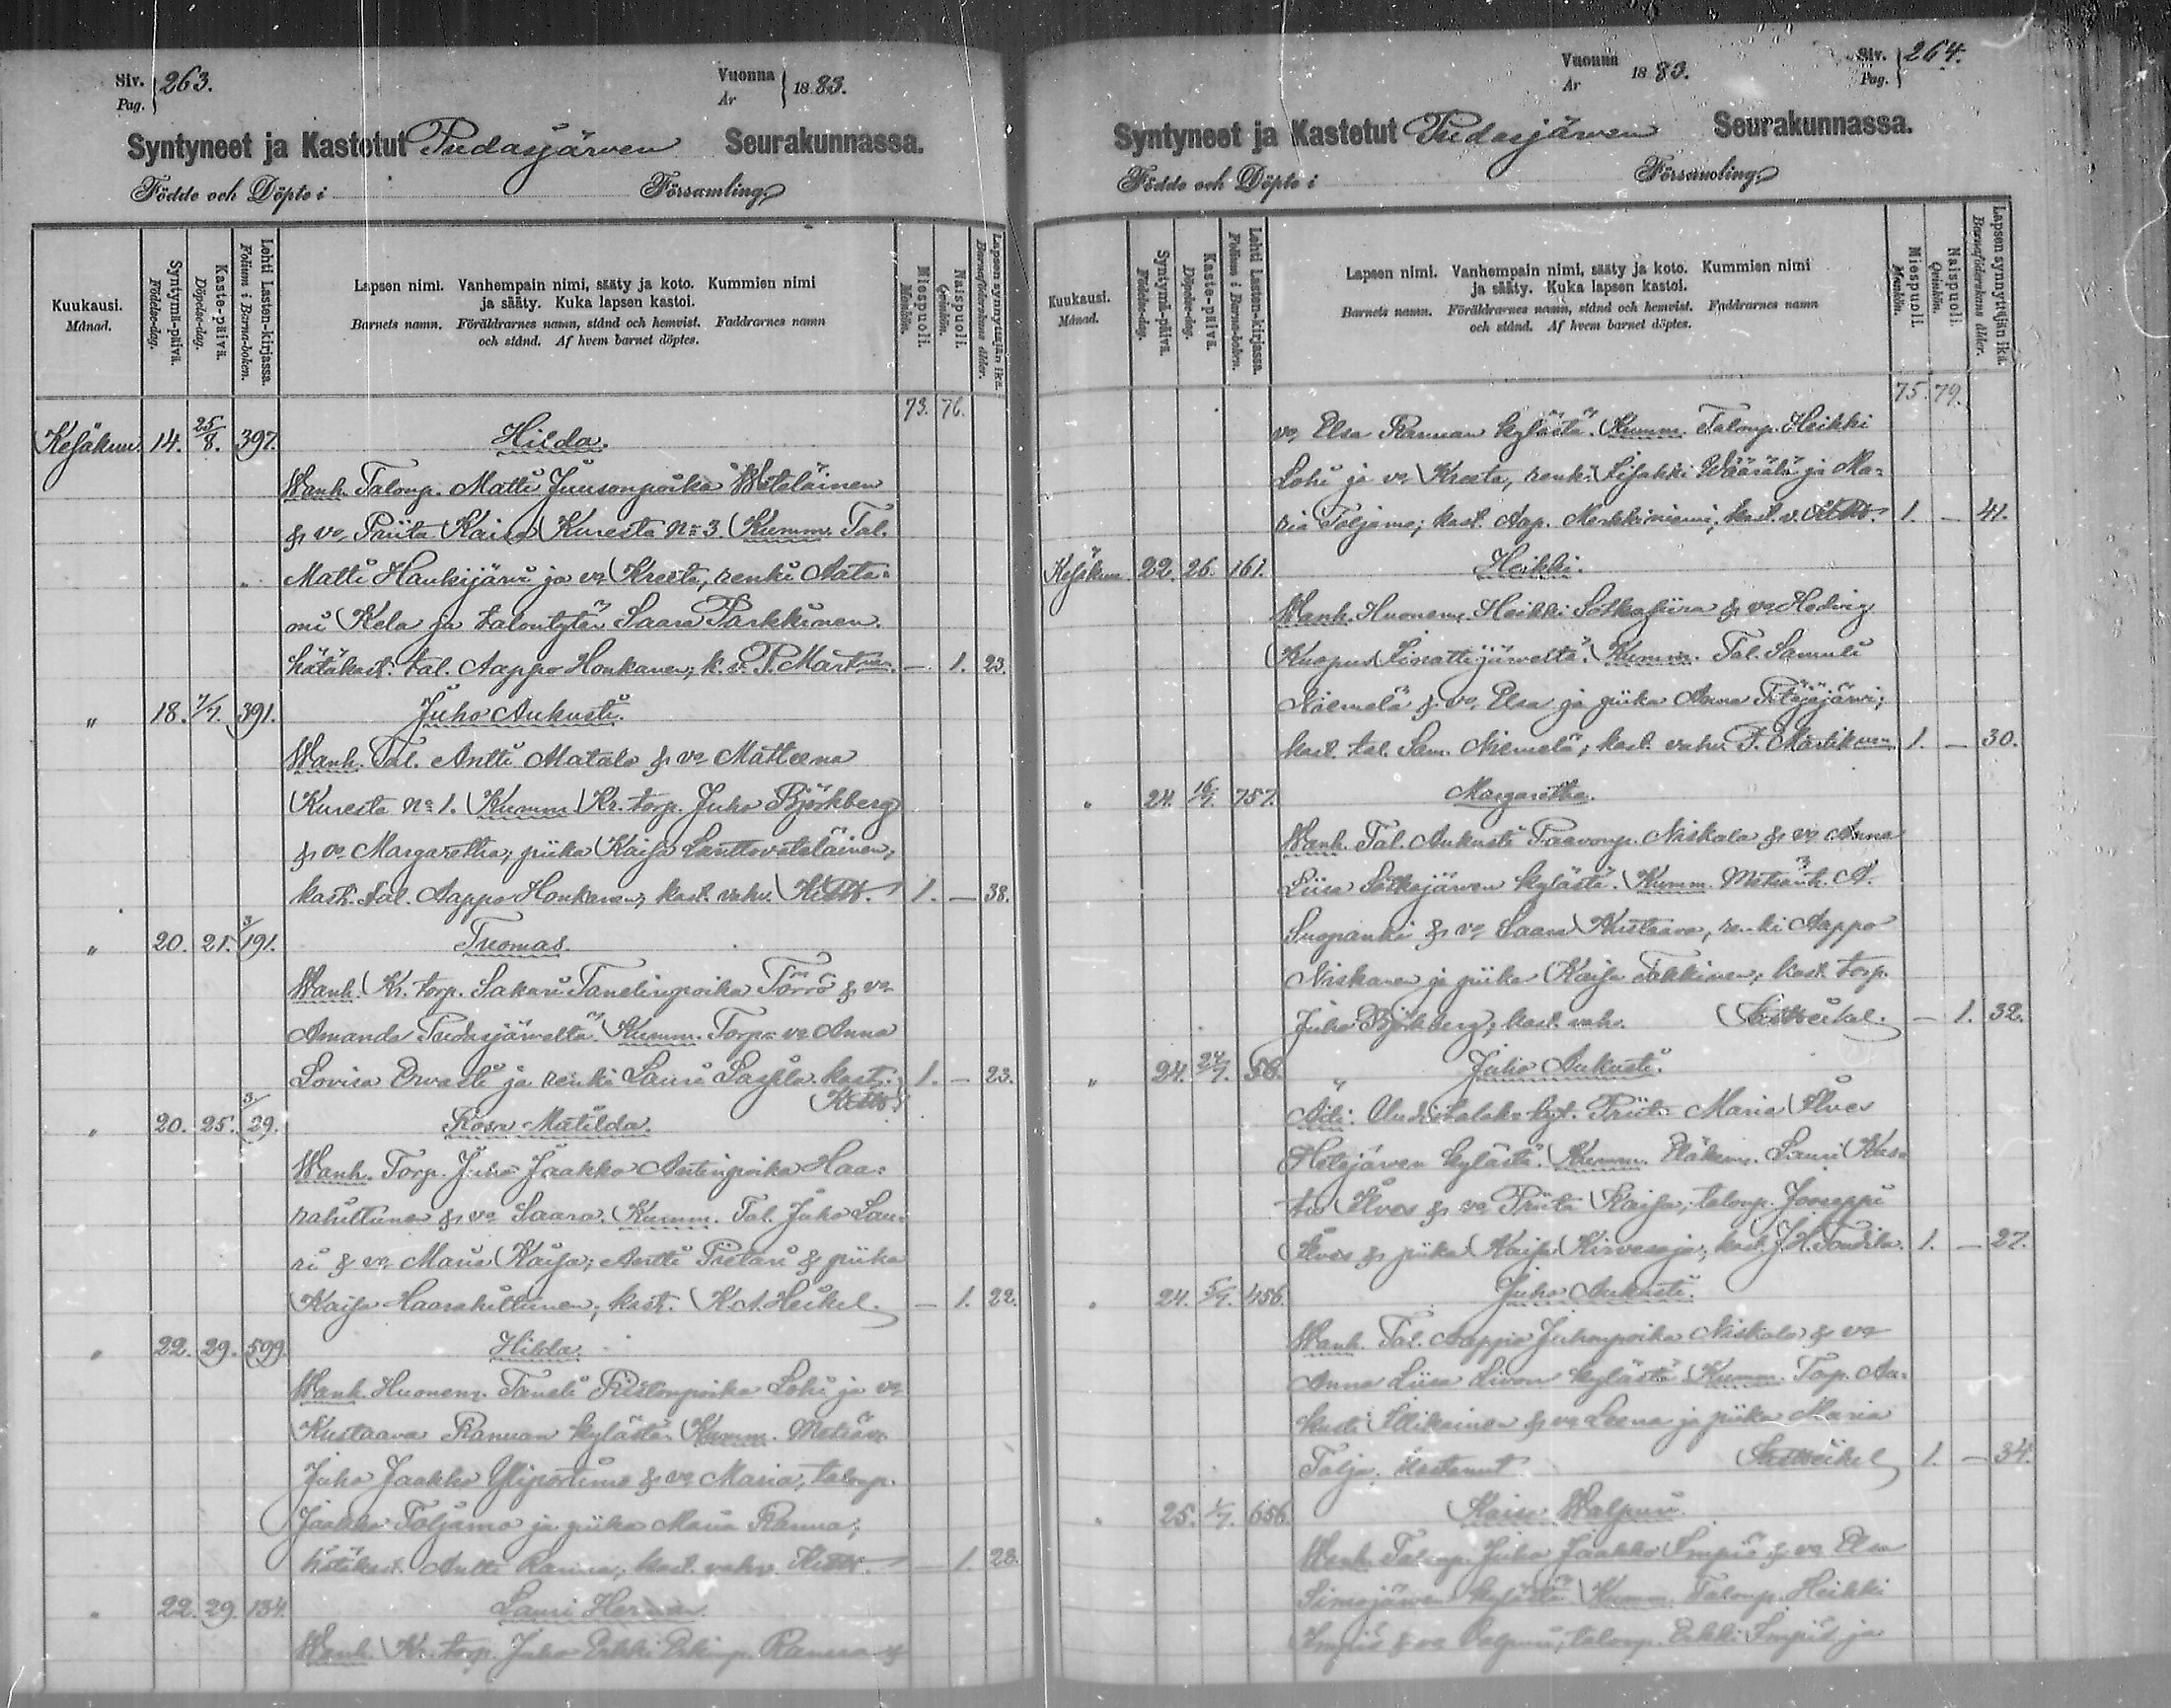 Siv. Pag. 263. Vuonna År 1883.
Syntyneet ja Kastetut Pudasjärven Seurakunnassa.
Födde och Döpte i Församling
Kuukausi. Månad. Syntymä-päivä. Födelse-dag. Kaste-päivä. Döpelse-dag. Lehti Lasten-kirjassa. Folium i Barna-boken.
Lapsen nimi. Vanhempain nimi, sääty ja koto. Kummien nimi
ja sääty. Kuka lapsen kastoi.
Barnets namn. Föräldrarnes namn, stånd och hemvist. Faddrarnes namn
och stånd. Af hvem barnet döptes.
Miespuoli. Mankön. Naispuoli. Qvinkön. Lapsen synnyttäjän ikä. Barnaföderskans ålder.
73. 76.
Kesäkuu. 14. 25/8. 397. Hilda.
Wanh. Talonp. Matti Juusonpoika Weteläinen
& vo Priita Kaisa Kuresta No 3. Kumm. Tal.
Matti Haukijärvi ja vo Kreeta, renki Aata-
mi Kela ja talontytär Saara Parkkinen.
hätäkast. tal. Aappo Honkanen; k. v. P. Martnen. — 1. 23.
" 18. 1/7. 391. Juho Aukusti.
Wanh. Tal. Antti Matala & vo Matleena
Kuresta No 1. Kumm. Kr. torp. Juho Björkberg
& vo Margaretha; piika Kaisa Lanttoveteläinen;
kast. tal. Aappo Honkanen, kast. vahv. 1. — 38.
" 20. 21. 3/191. Tuomas.
Wanh. Kr. torp. Sakari Tanelinpoika Törrö & vo
Amanda Pudasjärveltä. Kumm. Torp:n vo Anna
Lovisa Ervasti ja renki Lauri kast. 1. — 23.
" 20. 25. 3/29. Rosa Matilda.
Wanh. Torp. Juho Jaakko Antinpoika Haa-
rahiltunen & vo Saara. Kumm. Tal. Juho Lau-
ri & vo Maria Kaisa; Antti Pietari & piika
Kaisa Haarahiltunen; kast. K. A. Heikel. — 1. 22.
" 22. 29. 599. Hilda.
Wanh. Huonem. Taneli Lohi ja vo
Kustaava Ranuan kylästä. Kumm. Metsäv.
Juho Jaakko Yliportimo & vo Maria, talonp.
Jaakko Toljamo ja piika Maria Ranua;
hätäkast. Antti Ranua, kast. vahv. — 1. 28.
" 22. 29. 134. Lauri Herman.
Wanh. Kr. torp. Juho Erkki Erkinp. Ranua &
Vuonna År 1883. Siv. Pag. 264.
Syntyneet ja Kastetut Pudasjärven Seurakunnassa.
Födde och Döpte i Församling
Kuukausi. Månad. Syntymä-päivä. Födelse-dag. Kaste-päivä. Döpelse-dag. Lehti Lasten-kirjassa. Folium i Barna-boken.
Lapsen nimi. Vanhempain nimi, sääty ja koto. Kummien nimi
ja sääty. Kuka lapsen kastoi.
Barnets namn. Föräldrarnes namn, stånd och hemvist. Faddrarnes namn
och stånd. Af hvem barnet döptes.
Miespuoli. Mankön. Naispuoli. Qvinkön. Lapsen synnyttäjän ikä. Barnaföderskans ålder.
75. 79.
vo Elsa Ranuan kylästä. Kumm. Talonp. Heikki
Lohi ja vo Kreeta, renki Iisakki Wäärälä ja Ma-
ria Toljamo; kast. Aap. Merkkiniemi; kast. v. 1. — 41.
Kesäkuu 22. 26. 161. Heikki.
Wanh. Huonem. Heikki Sotkasiira & vo Hedvig
Kuopus Iinattijärveltä. Kumm. Tal. Samuli
Niemelä & vo Elsa ja piika Anna Pitäjäjärvi;
kast. tal. Sam. Niemelä; kast. vahv. P. Martiknen 1. — 30.
" 24. 16/7. 757. Margaretha.
Wanh. Tal. Aukusti Paavonp. Niskala & vo Anna
Liisa Sotkajärven kylästä. Kumm. Metsänh. A.
Suopanki & vo Saara Kustaava, renki Aappo
Niskanen ja piika Kaisa Takkinen; kast. torp.
Juho Björkberg; kast. vahv. Heikel. — 1. 32.
" 24. 24/7. 56. Juho Aukusti.
Äiti: tyt. Priita Maria Ilves
Hetejärven kylästä. Kumm. Lauri Kus-
taa Ilves & vo Priita Kaisa; talonp. Jooseppi
Ilves & piika Kaisa Kirvesoja; kast. J. H. 1. — 27.
" 24. 5/7. 456. Juho Aukusti.
Wanh. Tal. Aappo Juhonpoika Niskala & vo
Anna Liisa Livon kylästä. Kumm. Torp. Au-
kusti Illikainen & vo Leena ja piika Maria
Talja; kastanut Heikel 1. — 34.
" 25. 1/7. 656. Kaisa Walpuri.
Wanh. Talonp. Juho Jaakko Impiö & vo Elsa
Simojärven kylästä. Kumm. Talonp. Heikki
Impiö & vo Valpuri; talonp. Erkki Impiö ja